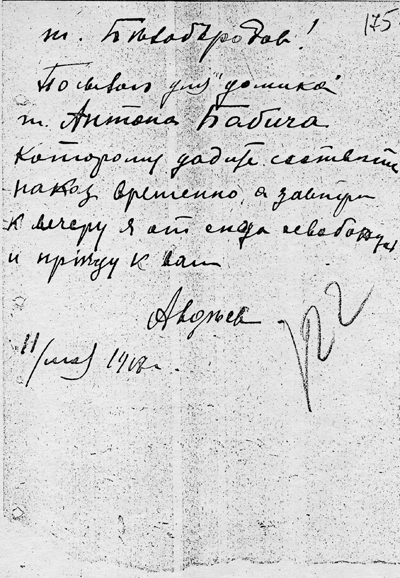 175
т. Белобородов!
Посылаю для "домика"
т. Антона Бабича
которому дадите соответств
наказ временно, а завтра
к вечеру я от сюда освобожусь
и приеду к вам
Авдеев
11/мая 1918 г.
122